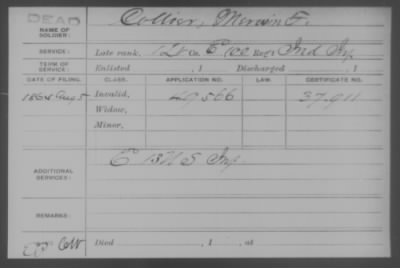 DEAD
NAME OF SOLDIER:
Collier, Merwin F.
SERVICE:
Late rank, Co. E 100 Reg't Ind Inf
TERM OF SERVICE:
Enlisted , 1 Discharged , 1
DATE OF FILING. CLASS. APPLICATION NO. LAW. CERTIFICATE NO.
1864 Aug 5 Invalid, 49566 37.911
Widow,
Minor,
ADDITIONAL SERVICES:
E 13 U S Inf
REMARKS:
Died , 1 , at